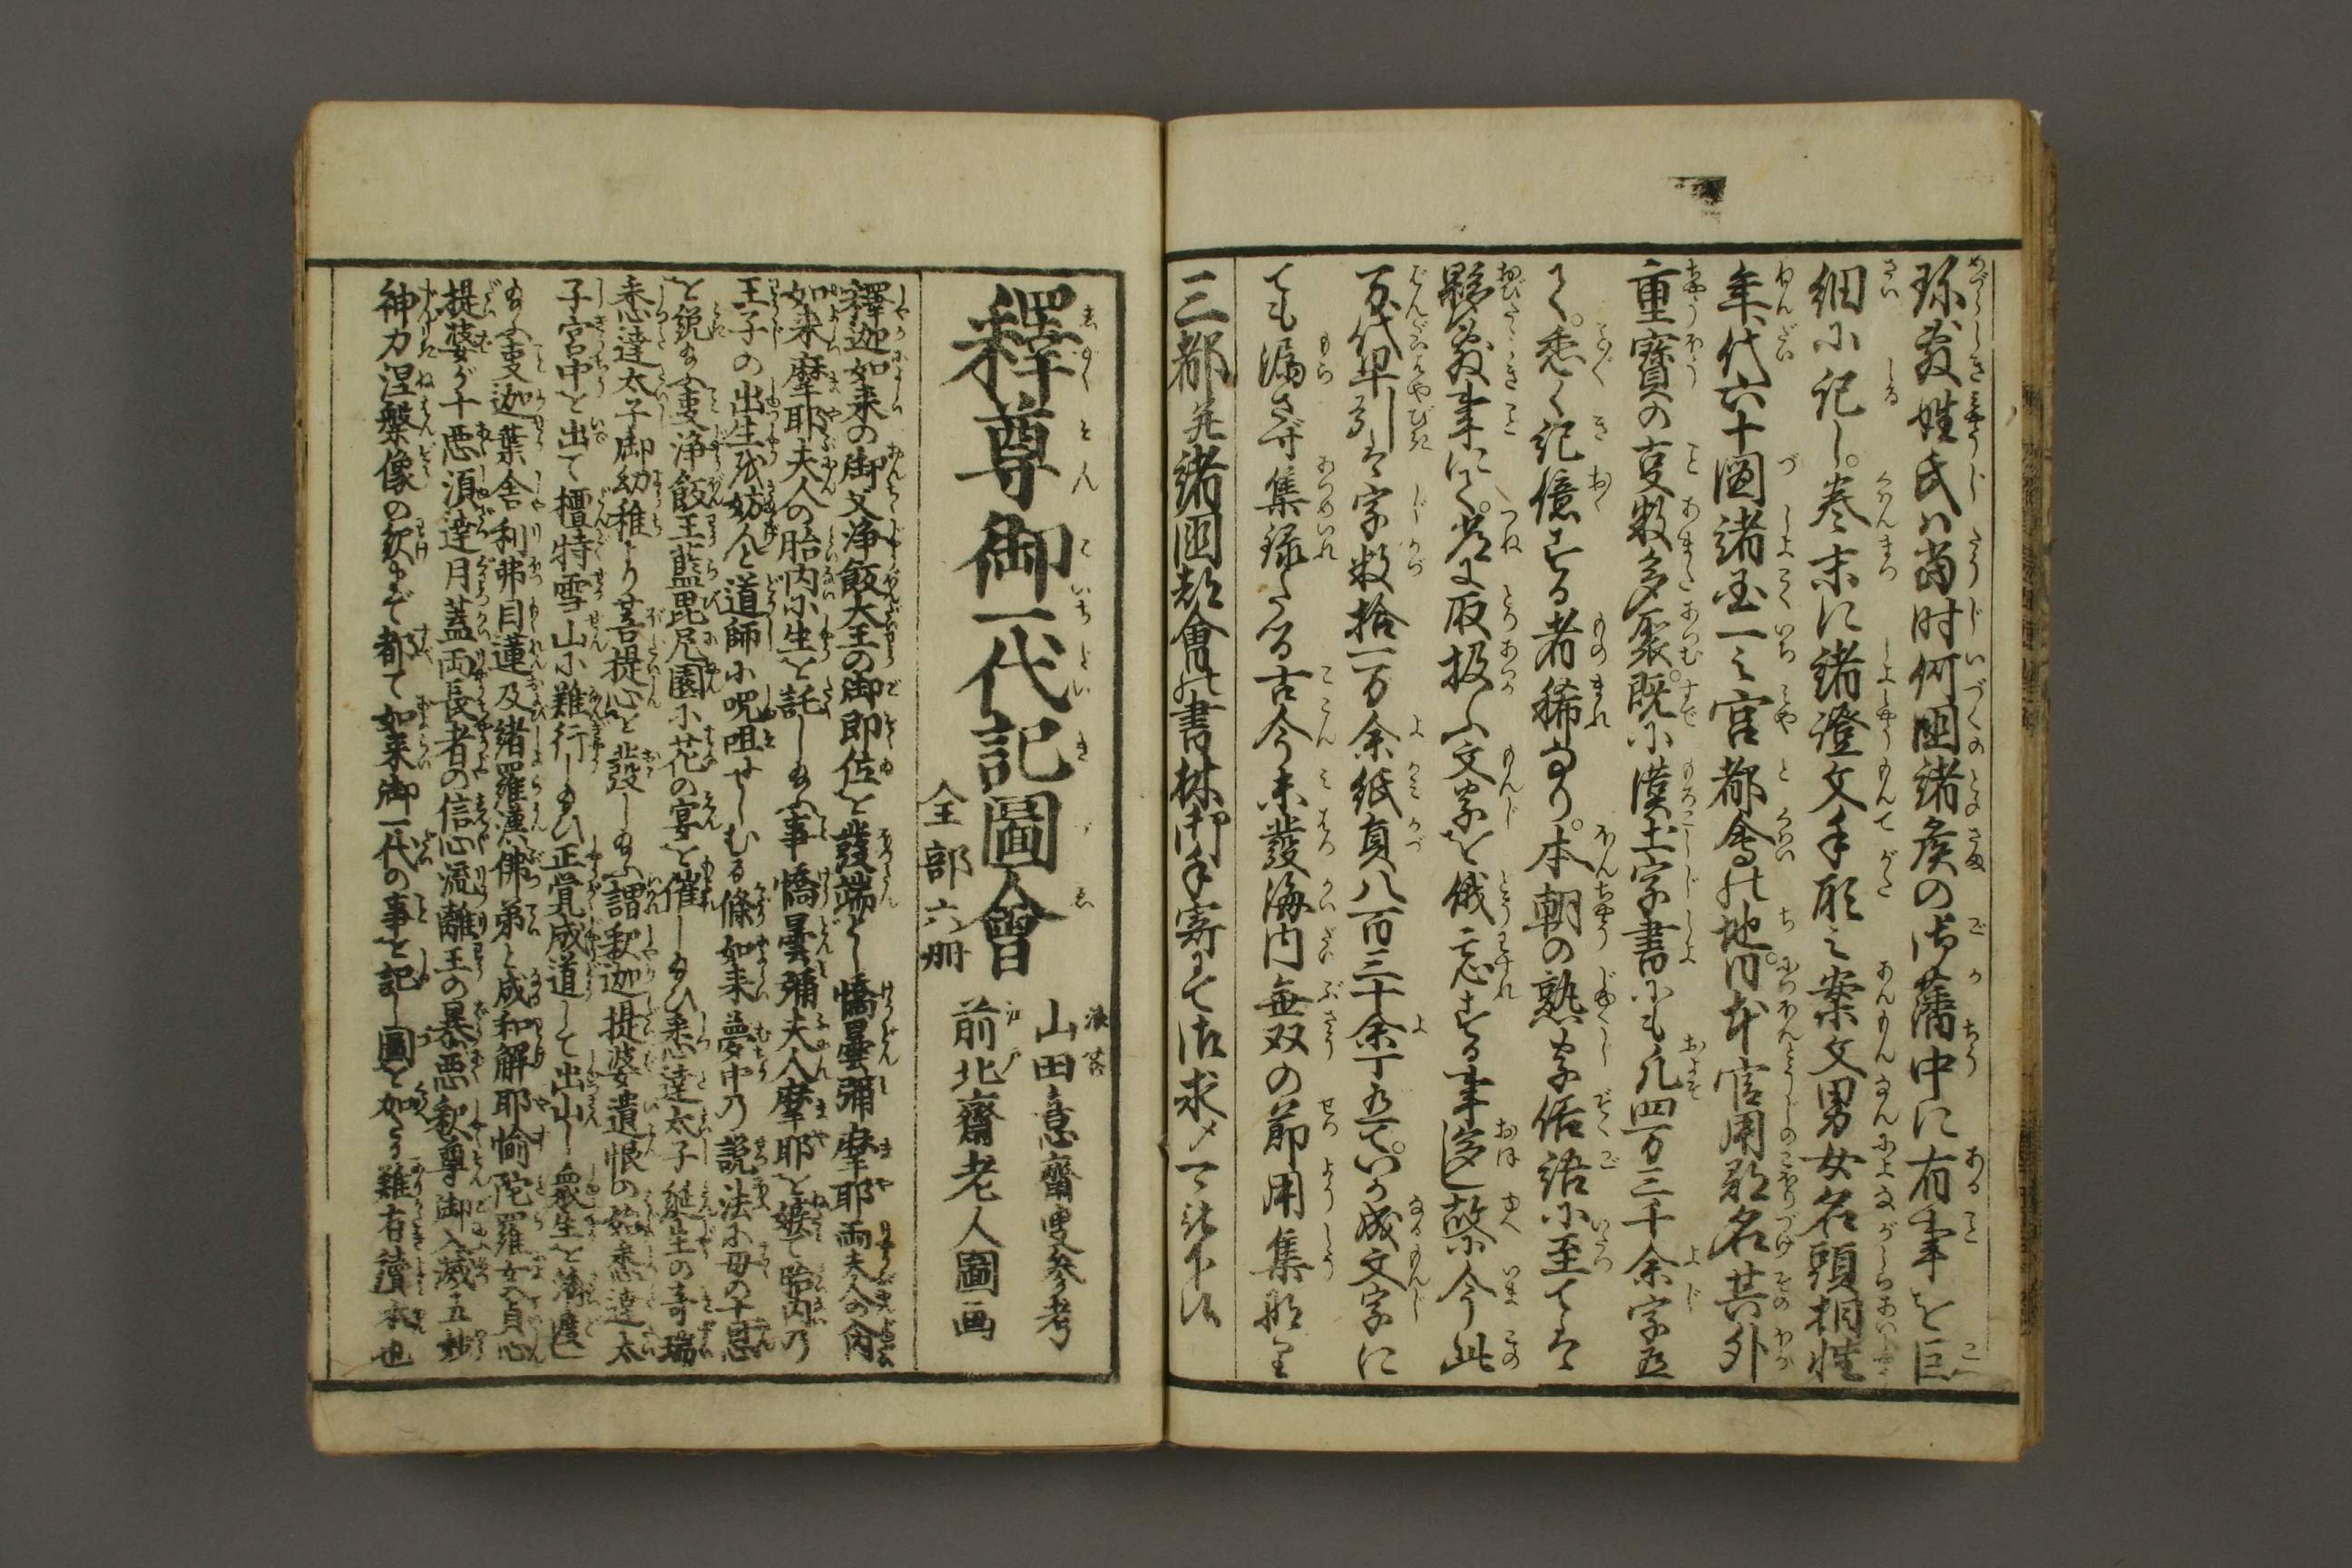 珎敷姓氏ハ当时何國諸矦の御藩中に有事を巨
細小記し。巻末に諸證文手形之案文男女名頭相性
年代六十圖諸国一之宮都會の地。日本官用郡名其外
重寳の㕝数多聚。既小漢土字書にも凡四万三千余字有
て。悉く記憶する者稀なり。本朝の熟字俗語小至ては
夥敷事にて。常に取扱ふ文字を俄に忘する事多し故今此
万代早引は字数拾一万余紙員八百三十余丁有て。いか成文字に
ても漏さず集録たる古今未發海内無双の節用集也
三都并諸國都會の書林
釋尊御一代記圖會
全部六册
山田意齋叟参考
前北齋老人圖画
釋迦如来の御父浄飯大王の御即位を發端とし憍曇彌摩耶両夫人の内
如来摩耶夫人の胎内小生を託し給ふ事憍曇彌夫人摩耶を嫉て胎内の
王子の出生を妨んと道師小呪咀せしむる條如来夢中の説法小母の十恩
を説給ふ㕝浄飯王藍毘尼園小花の宴を催し給ひ悉達太子誕生の奇瑞
悉達太子御幼稚より菩提心を發し給ふ謂釈迦提婆遺恨の始悉達太
子宮中を出て檀特雪山小難行し給ひ正覚成道して出山し衆生を済度し
給ふ㕝迦葉舎利弗目蓮及諸羅漢佛弟と成和解耶愉陀羅女の貞心
提婆が十悪須達月蓋両長者の信心流離王の暴悪釈尊御入滅十五妙
神力涅槃像の訳まで都て如来御一代の事を記し圖を加たる難有讀本也